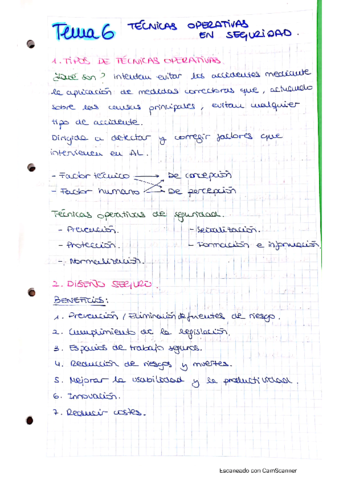 Tema 6 TÉCNICAS OPERATIVAS
EN SEGURIDAD.
1. TIPOS DE TÉCNICAS OPERATIVAS
¿Qué son? intentan evitar los accidentes mediante
la aplicación de medidas correctoras que, actuando
sobre las causas principales, evitan cualquier
tipo de accidente.
Dirigida a detectar y corregir factores que
intervienen en AL.
- Factor técnico De concepción
- Factor humano De percepción
Técnicas operativas de seguridad.
- Prevención. - Señalización.
- Protección. - Formación e información
- Normalización.
2. DISEÑO SEGURO.
BENEFICIOS:
1. Prevención / Eliminación de fuentes de riesgo.
2. Cumplimiento de la legislación.
3. Espacios de trabajo seguros.
4. Reducción de riesgos y muertes.
5. Mejorar la usabilidad y la productividad.
6. Innovación.
7. Reducir costes.
Escaneado con CamScanner